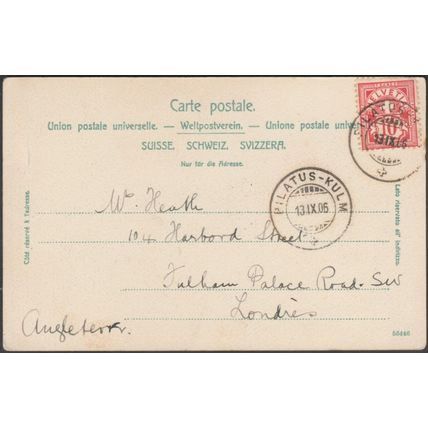 Carte postale.
Union postale universelle. — Weltpostverein. — Unione postale univer
SUISSE. SCHWEIZ. SVIZZERA.
Nur für die Adresse.
HELVETIA
10
PILATUS-K
13 IX. 06
PILATUS-KULM
13 IX. 06
Côté réservé à l'adresse.
Mr. Heath
104 Harbord Street
Fulham Palace Road. SW
Londres
Angleterre.
Lato riservato all' indirizzo.
55446